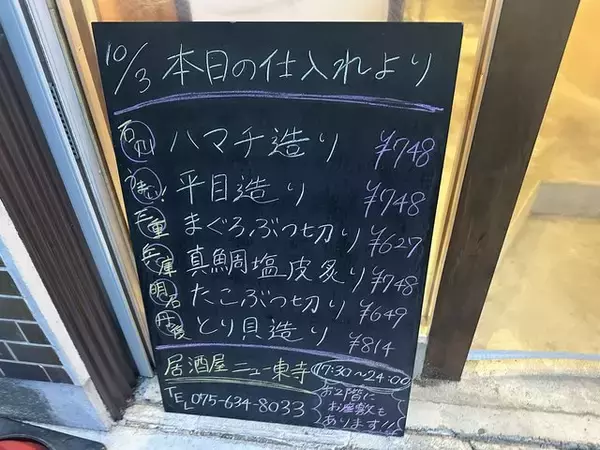 10/3 本日の仕入れより
石川 ハマチ造り ¥748
うまい! 平目造り ¥748
三重 まぐろぶつ切り ¥627
兵庫 真鯛塩皮炙り ¥748
明石 たこぶつ切り ¥649
丹後 とり貝造り ¥814
居酒屋ニュー東寺 17:30~24:00
TEL 075-634-8033
お2階に
お座敷も
あります!!